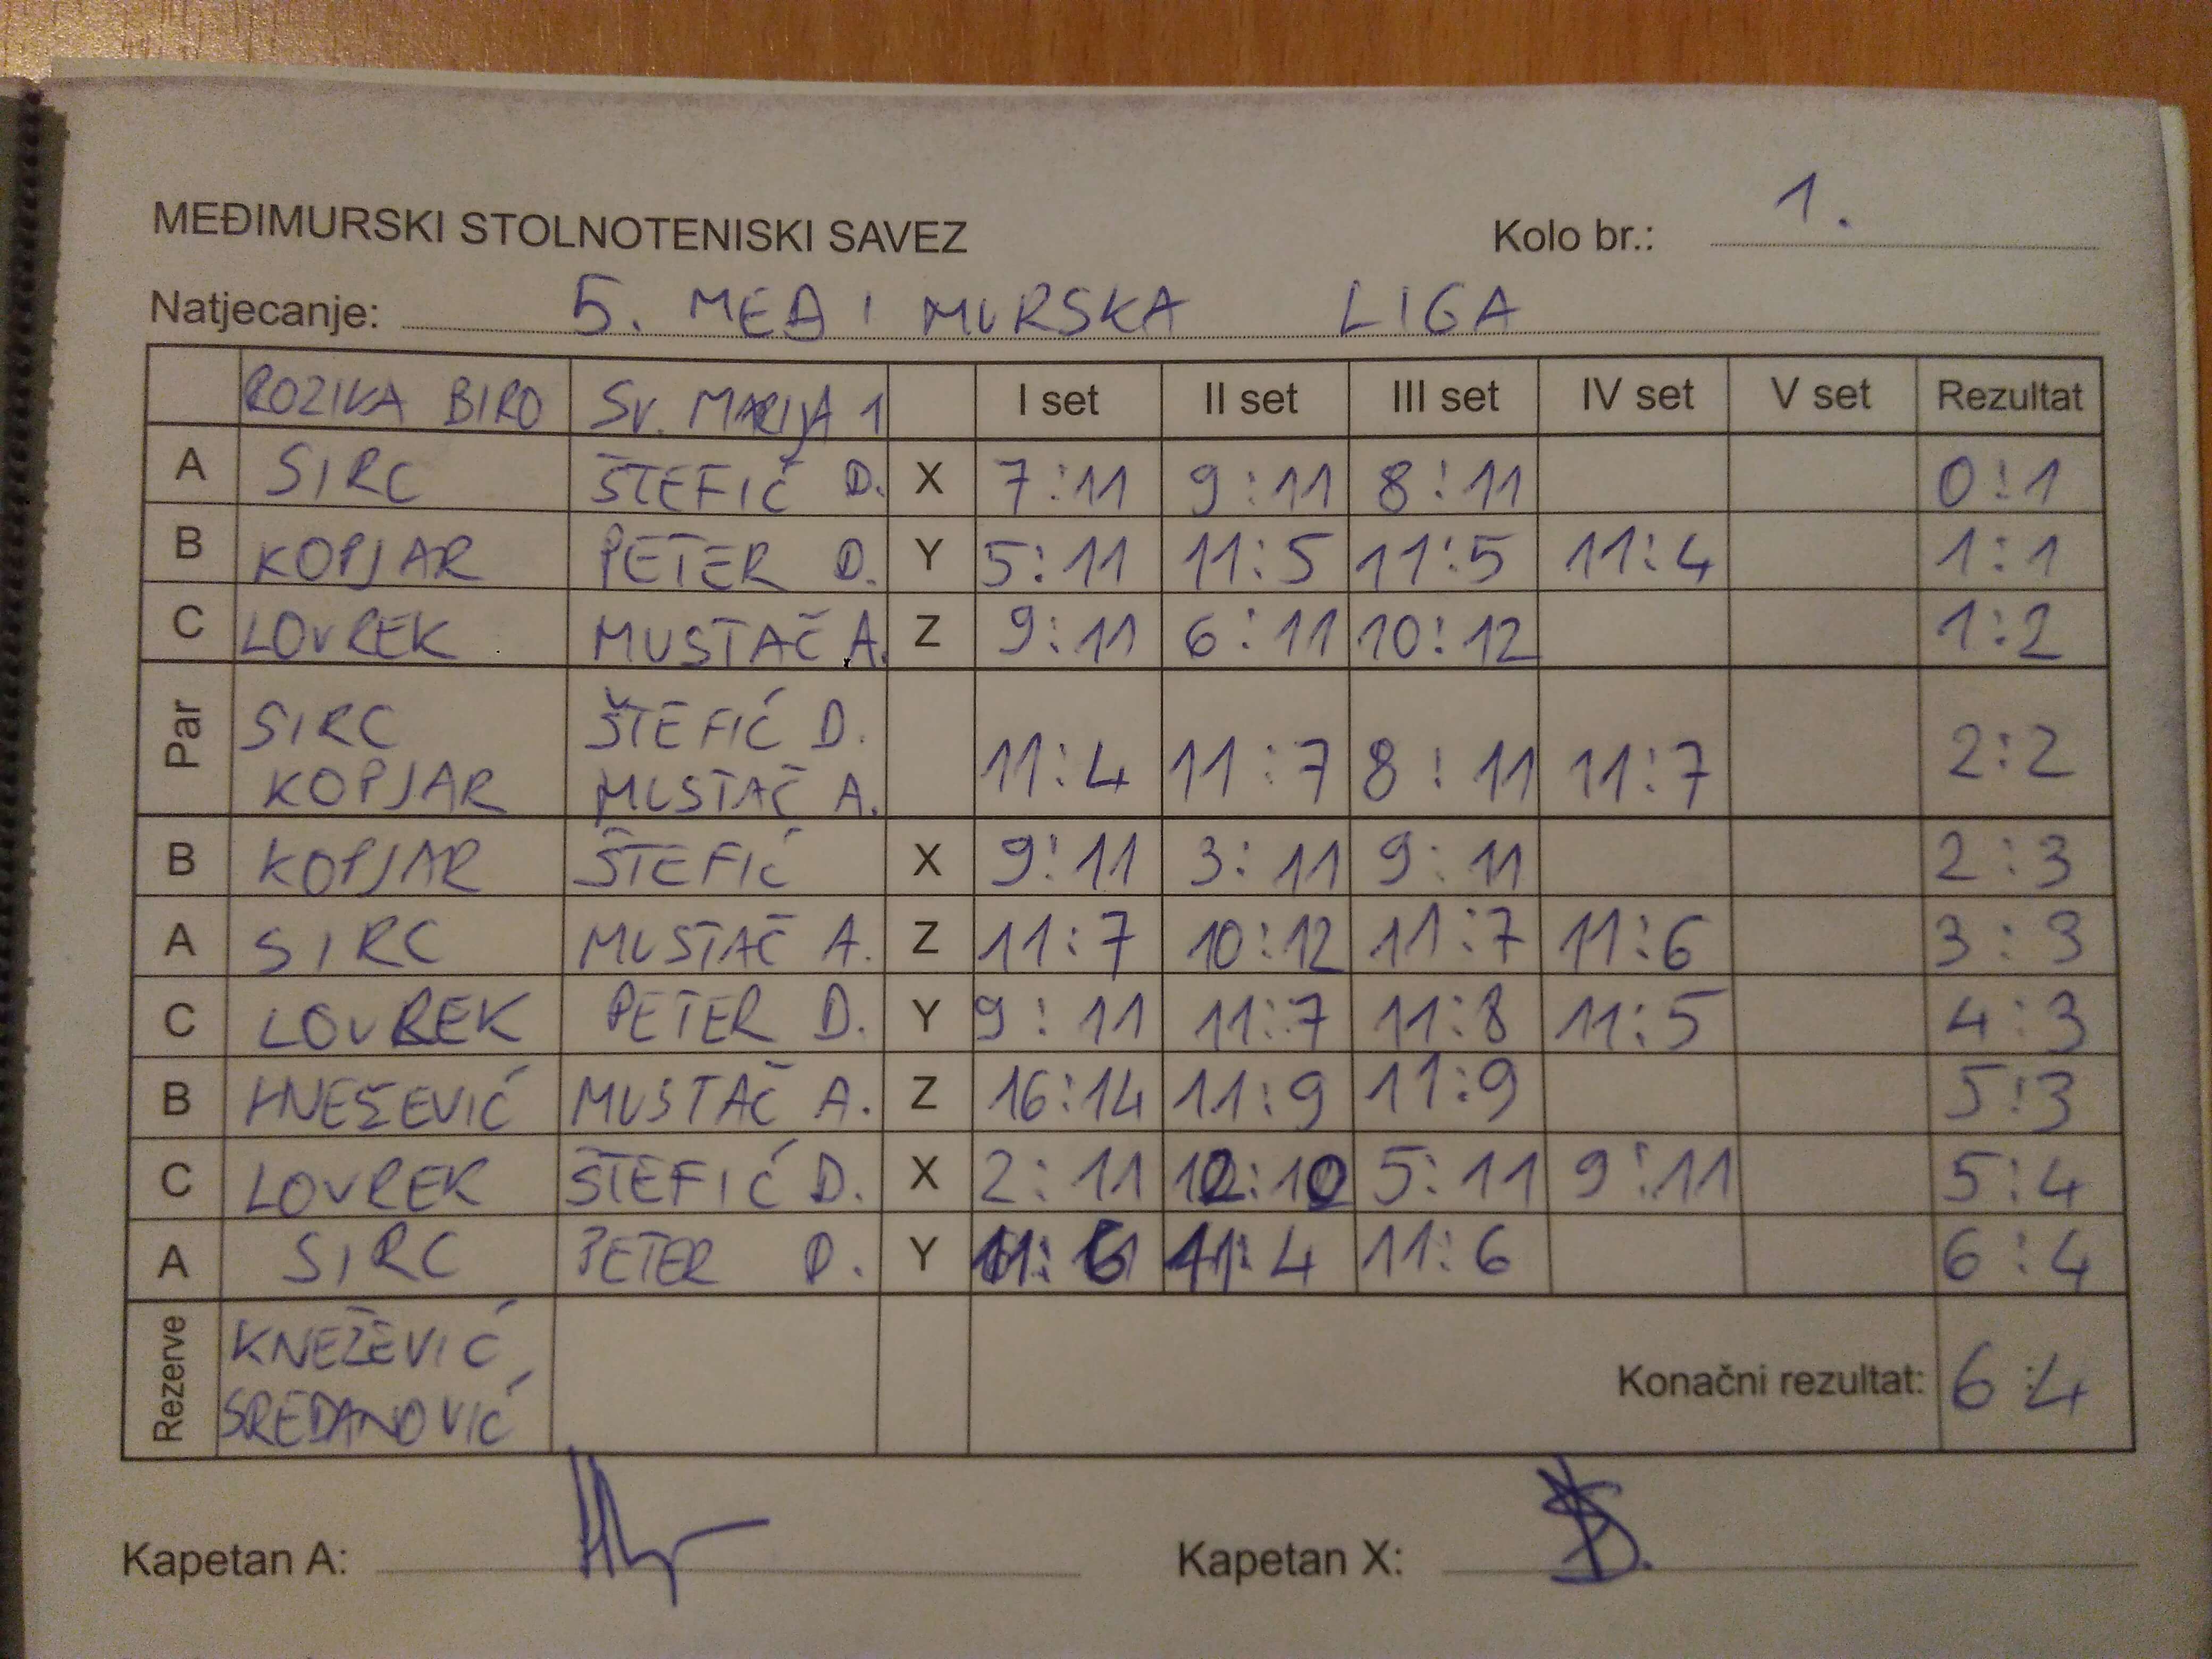 MEĐIMURSKI STOLNOTENISKI SAVEZ Kolo br.: 1.
Natjecanje: 5. MEĐIMURSKA LIGA
ROZIKA BIRO SV. MARIJA 1 I set II set III set IV set V set Rezultat
A SIRC ŠTEFIĆ D. X 7:11 9:11 8:11 0:1
B KOPJAR PETER D. Y 5:11 11:5 11:5 11:4 1:1
C LOVREK MUSTAČ A. Z 9:11 6:11 10:12 1:2
Par SIRC KOPJAR ŠTEFIĆ D. MUSTAČ A. 11:4 11:7 8:11 11:7 2:2
B KOPJAR ŠTEFIĆ X 9:11 3:11 9:11 2:3
A SIRC MUSTAČ A. Z 11:7 10:12 11:7 11:6 3:3
C LOVREK PETER D. Y 9:11 11:7 11:8 11:5 4:3
B KNEŽEVIĆ MUSTAČ A. Z 16:14 11:9 11:9 5:3
C LOVREK ŠTEFIĆ D. X 2:11 12:10 5:11 9:11 5:4
A SIRC PETER D. Y 11:6 11:4 11:6 6:4
Rezerve KNEŽEVIĆ, SREDANOVIĆ Konačni rezultat: 6:4
Kapetan A: Kapetan X: